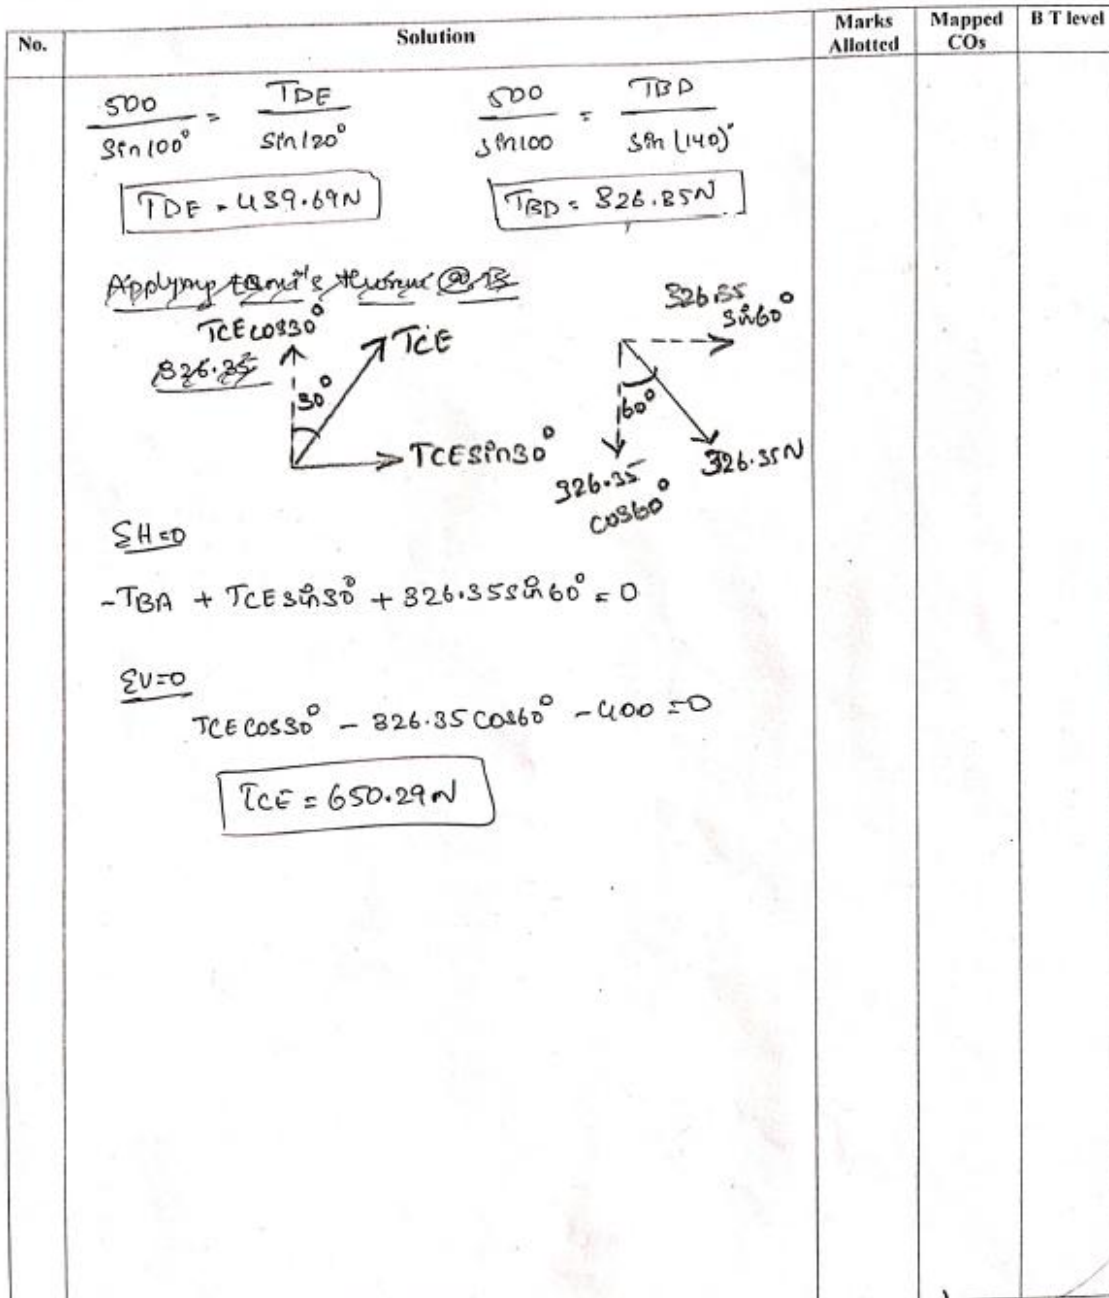 No. Solution Marks Allotted Mapped COs B T level
500/Sin100° = TDE/Sin120° 500/Sin100 = TBD/Sin(140)°
TDE = 439.69N TBD = 326.35N
Applying theorem @ B
TCE cos30° TCE 326.35 Sin60°
326.35
30° 60°
TCE Sin30° 326.35 cos60° 326.35N
ΣH=0
-TBA + TCE Sin30° + 326.35 Sin60° = 0
ΣV=0
TCE cos30° - 326.35 cos60° - 400 = 0
TCE = 650.29N